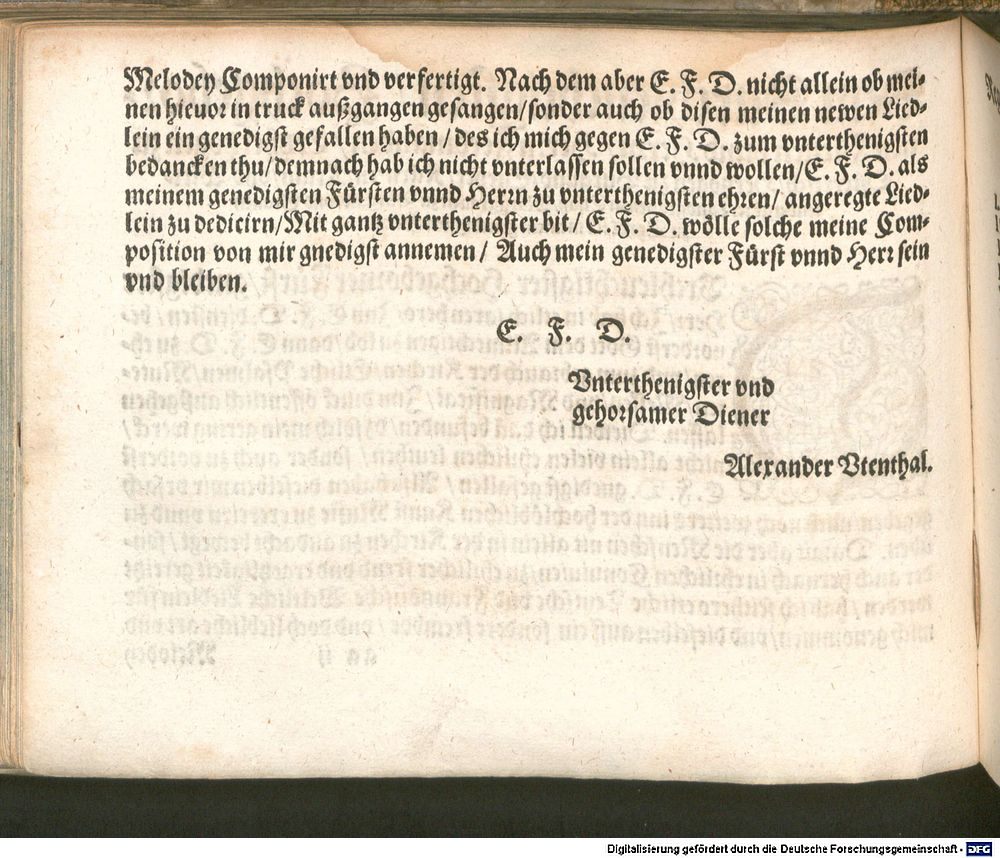 Melodey Componirt vnd verfertigt. Nach dem aber E. F. D. nicht allein ob mei-
nen hieuor in truck außgangen gesangen/sonder auch ob disen meinen newen Lied-
lein ein genedigst gefallen haben/ des ich mich gegen E. F. D. zum vnterthenigsten
bedancken thu/demnach hab ich nicht vnterlassen sollen vnnd wollen/E. F. D. als
meinem genedigsten Fürsten vnnd Herrn zu vnterthenigsten ehren/ angeregte Lied-
lein zu dedicirn/Mit gantz vnterthenigster bit/ E. F. D. wölle solche meine Com-
position von mir gnedigst annemen/ Auch mein genedigster Fürst vnnd Herr sein
vnd bleiben.
E. F. D.
Vnterthenigster vnd
gehorsamer Diener
Alexander Vtenthal.
Digitalisierung gefördert durch die Deutsche Forschungsgemeinschaft - DFG